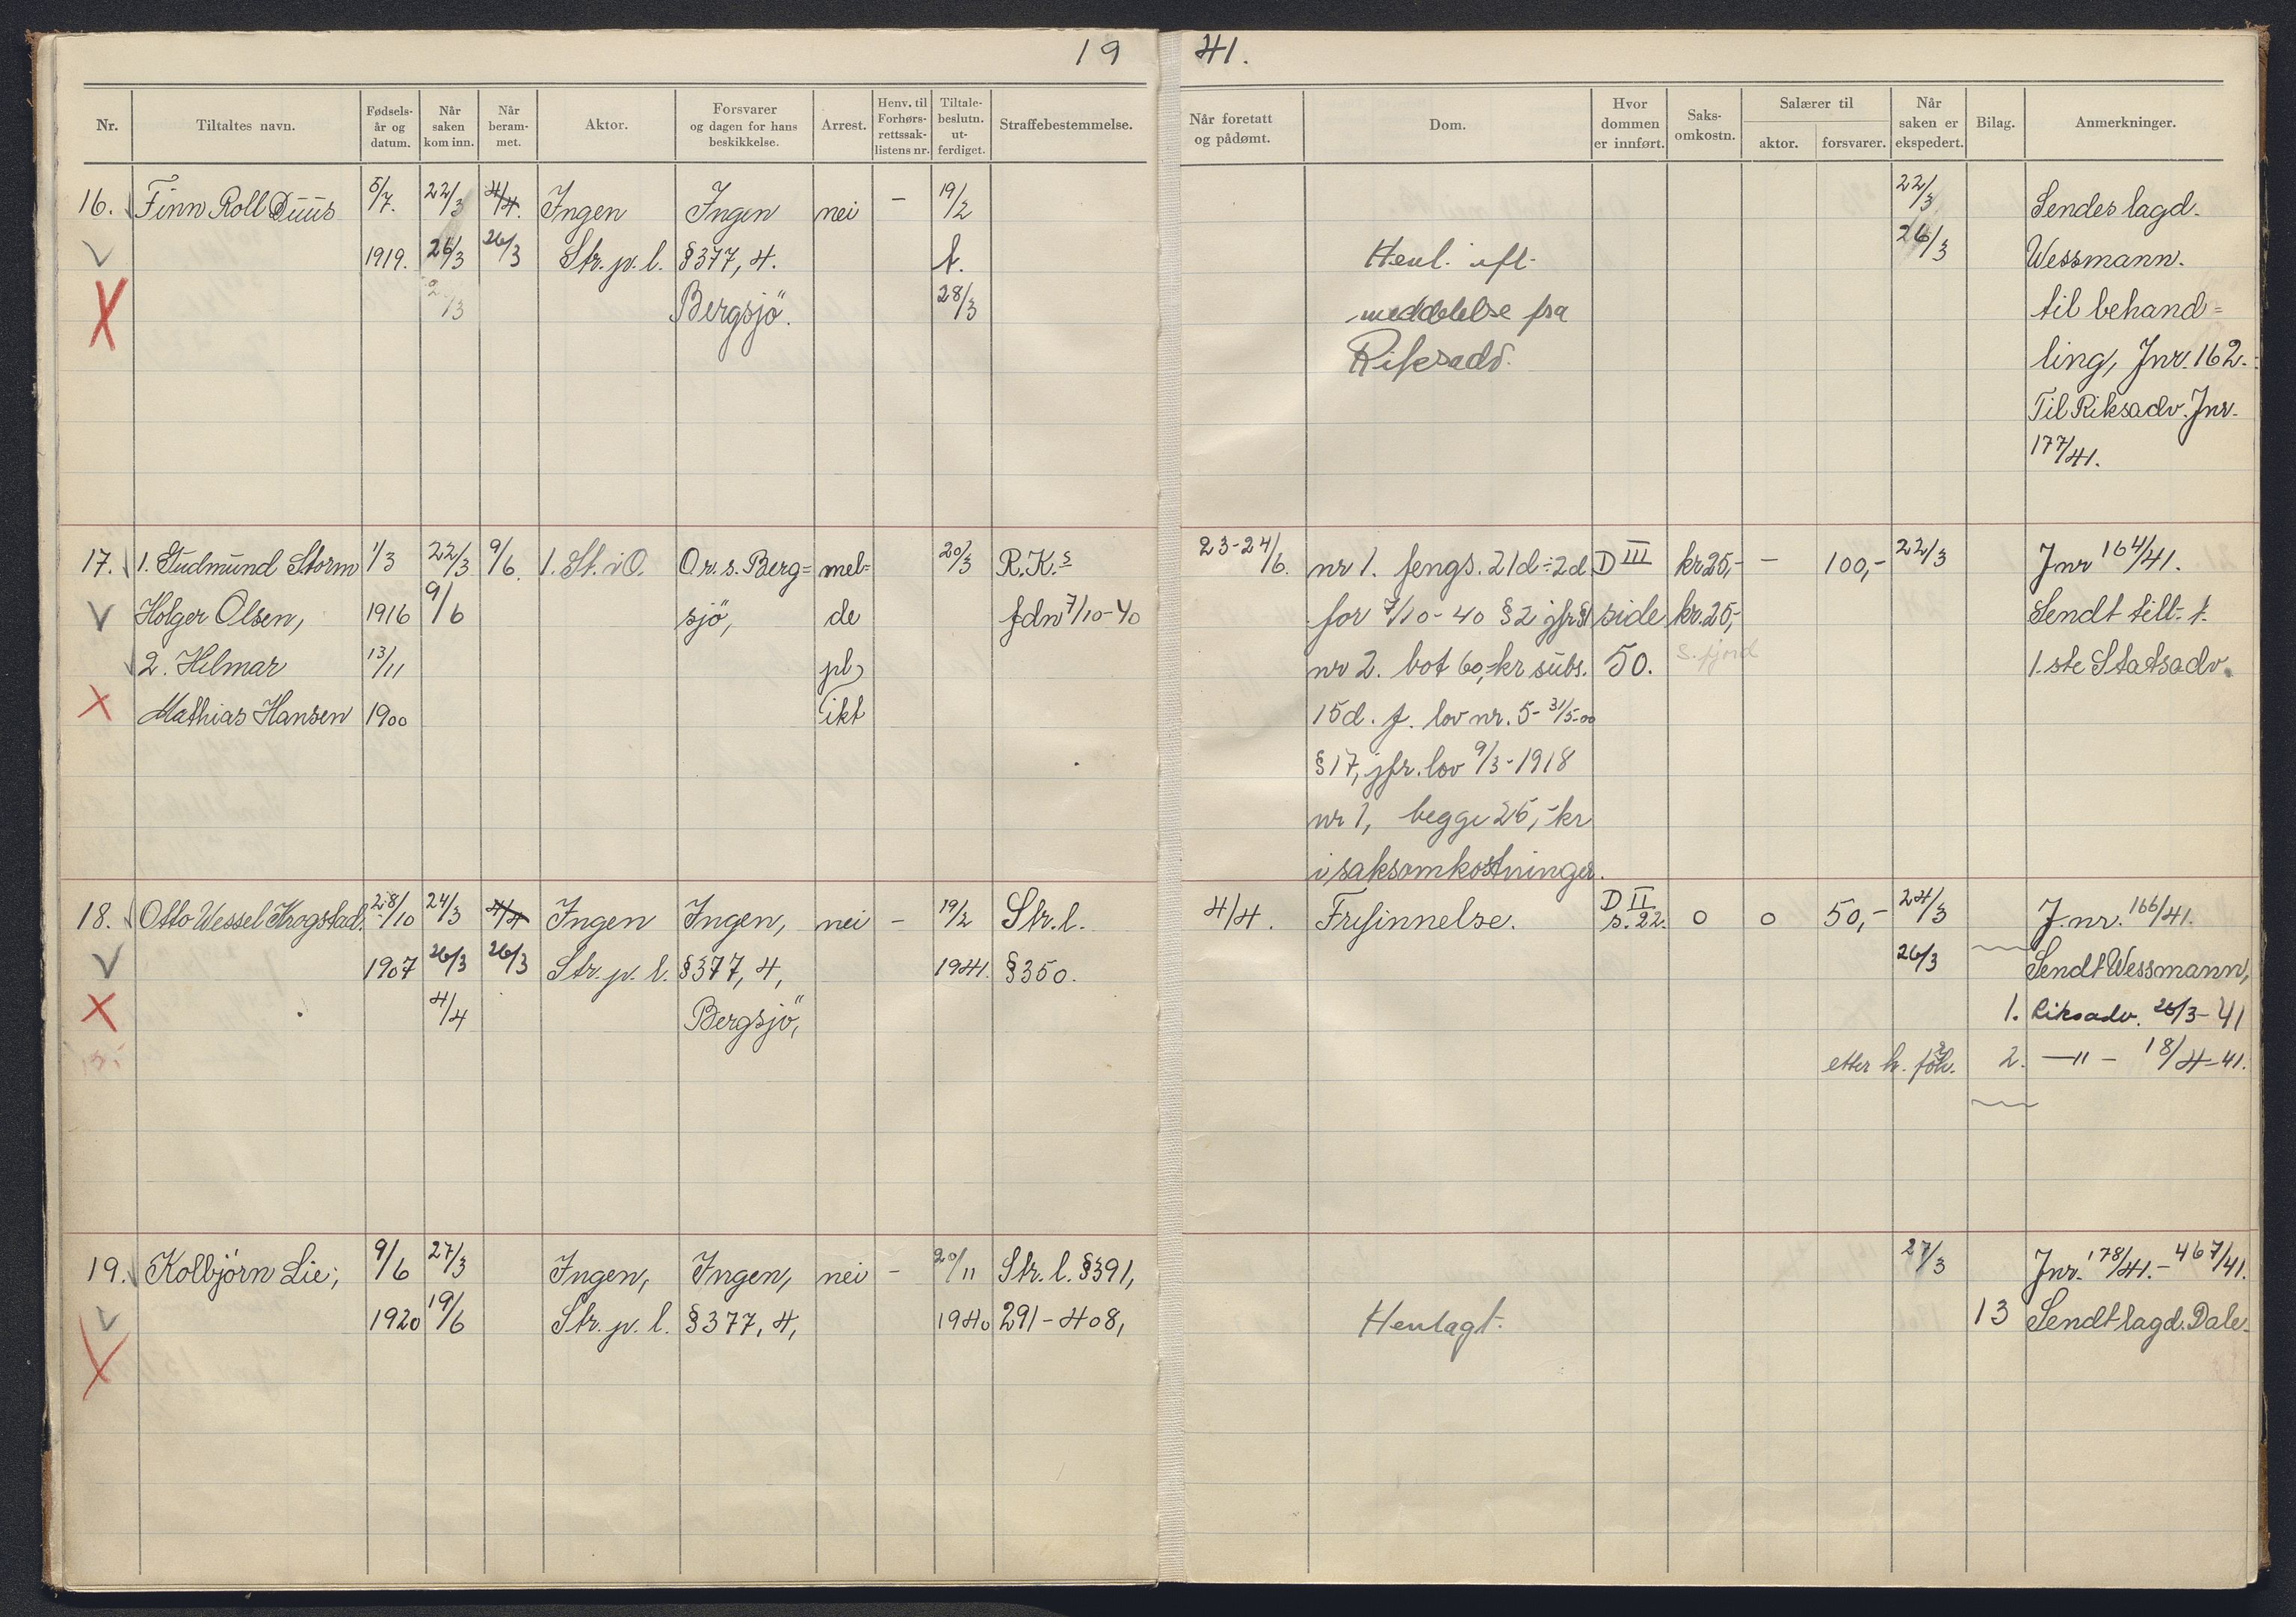 19 41.
Nr. Tiltaltes navn. Fødsels-år og datum. Når saken kom inn. Når beram-met. Aktor. Forsvarer og dagen for hans beskikkelse. Arrest. Henv. til Forhørs-rettssak-listens nr. Tiltale-beslutn. ut-ferdiget. Straffebestemmelse. Når foretatt og pådømt. Dom. Hvor dommen er innført. Saks-omkostn. Salærer til aktor. forsvarer. Når saken er ekspedert. Bilag. Anmerkninger.
16. Finn Roll Duus 5/7. 22/3 4/4. Ingen Ingen nei - 19/2 22/3 Sendes lagd.
1919. 26/3 26/3 Str. p. l. §377, 4. t. Henl. eft. 26/3 Wessmann.
Bergsjö. 28/3 meddelelse fra til behand=
Riksadv. ling, Jnr. 162.
Til Riksadv. Jnr.
177/41.
17. 1. Gudmund Storm 1/3 22/3 9/6. 1. St. i O. O.r.s. Berg= mel= 20/3 R.K.s 23-24/6. nr 1. fengs. 21d ÷ 2d. D III kr 25,- - 100,- 22/3 Jnr 164/41.
Holger Olsen, 1916 9/6 sjö, de fdn 7/10-40 for 7/10-40 §2 jfr §1 side kr. 25,- Sendt till. t.
2. Hilmar 13/11 pl nr 2. bot 60,- kr subs. 50. s. fjord 1.ste Statsadv.
Mathias Hansen 1900 ikt 15d. f. lov nr. 5- 31/5-00
§17, jfr. lov 9/3-1918
nr 1, begge 25,- kr
i saksomkostninger.
18. Otto Wessel Krogstad. 28/10 24/3 4/4 Ingen Ingen, nei - 19/2 Str. l. 4/4. Frifinnelse. D II s. 22. 0 0 50,- 24/3 J.nr. 166/41.
1907 26/3 26/3 Str. p. l. §377, 4, 1941. §350. 26/3 Sendt Wessmann,
4/4 Bergsjö, 1. Riksadv. 26/3-41
etter 2. -"- 18/4-41.
19. Kolbjörn Lie, 9/6 27/3 Ingen, Ingen, nei - 20/11 Str. l. §391, 27/3 Jnr. 178/41.- 467/41.
1920 19/6 Str. p. l. §377, 4, 1940 291-408, Henlagt. 13 Sendt lagd. Dale.